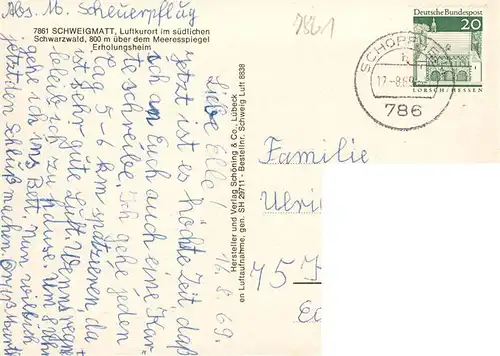 Abs. M. Scheuerpflug
7861 SCHWEIGMATT, Luftkurort im südlichen
Schwarzwald, 800 m über dem Meeresspiegel
Erholungsheim
16. 8. 69.
Liebe Elle!
Jetzt ist es höchte Zeit, daß
ich an Euch auch eine Kar-
te schreibe. Ich gehe jeden
Tag 5-6 km spatzieren, da
ist sehr gute Luft. Wenns regnet
bleib ich zu Hause. Um 8 Uhr
gehe ich ins Bett. Nun will ich
jetzt den Schluß machen.
Hersteller und Verlag Schöning & Co., Lübeck
en Luftaufnahme, gen. SH 29711 - Bestellnr. Schweig Luft 8838
7861
Deutsche Bundespost
20
LORSCH/HESSEN
SCHOPFHEIM
17.-8.69
786
Familie
Ulri
75